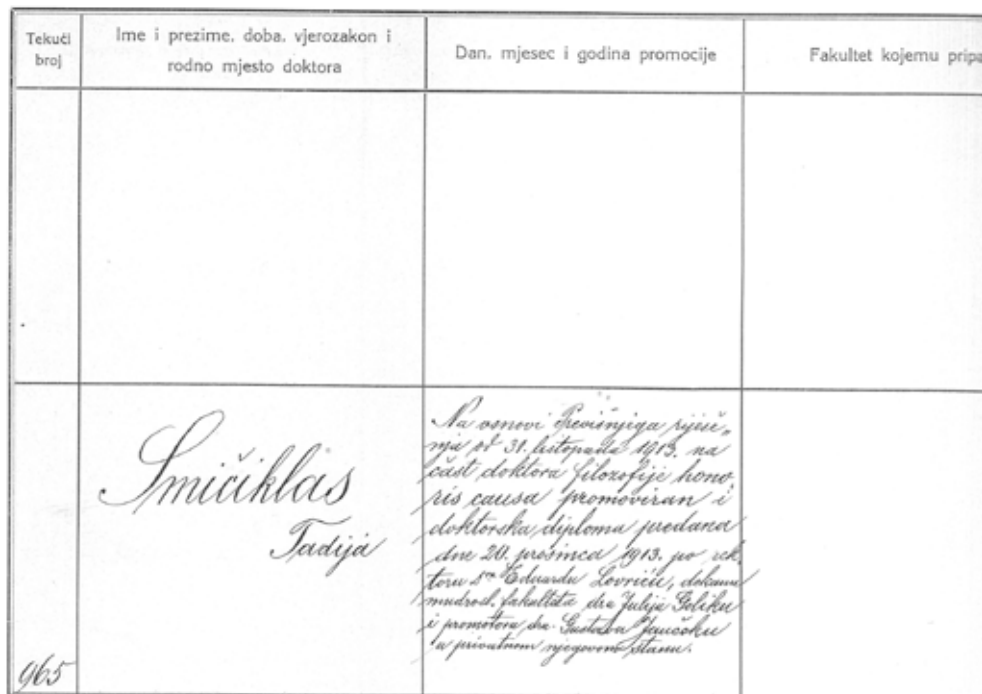 Tekući
broj
Ime i prezime, doba, vjerozakon i
rodno mjesto doktora
Dan, mjesec i godina promocije
Fakultet kojemu pripa
Smičiklas
Tadija
Na osnovi Previšnjega rješe„
nja od 31. listopada 1913. na
čast doktora filozofije hono„
ris causa promoviran i
doktorska diploma predana
dne 20. prosinca 1913. po rek„
toru dru Eduardu Lovriću, dekanu
mudrosl. fakulteta dra Julija Goliku
i promotoru dra Gustavu Janečeku
u privatnom njegovom stanu.
965